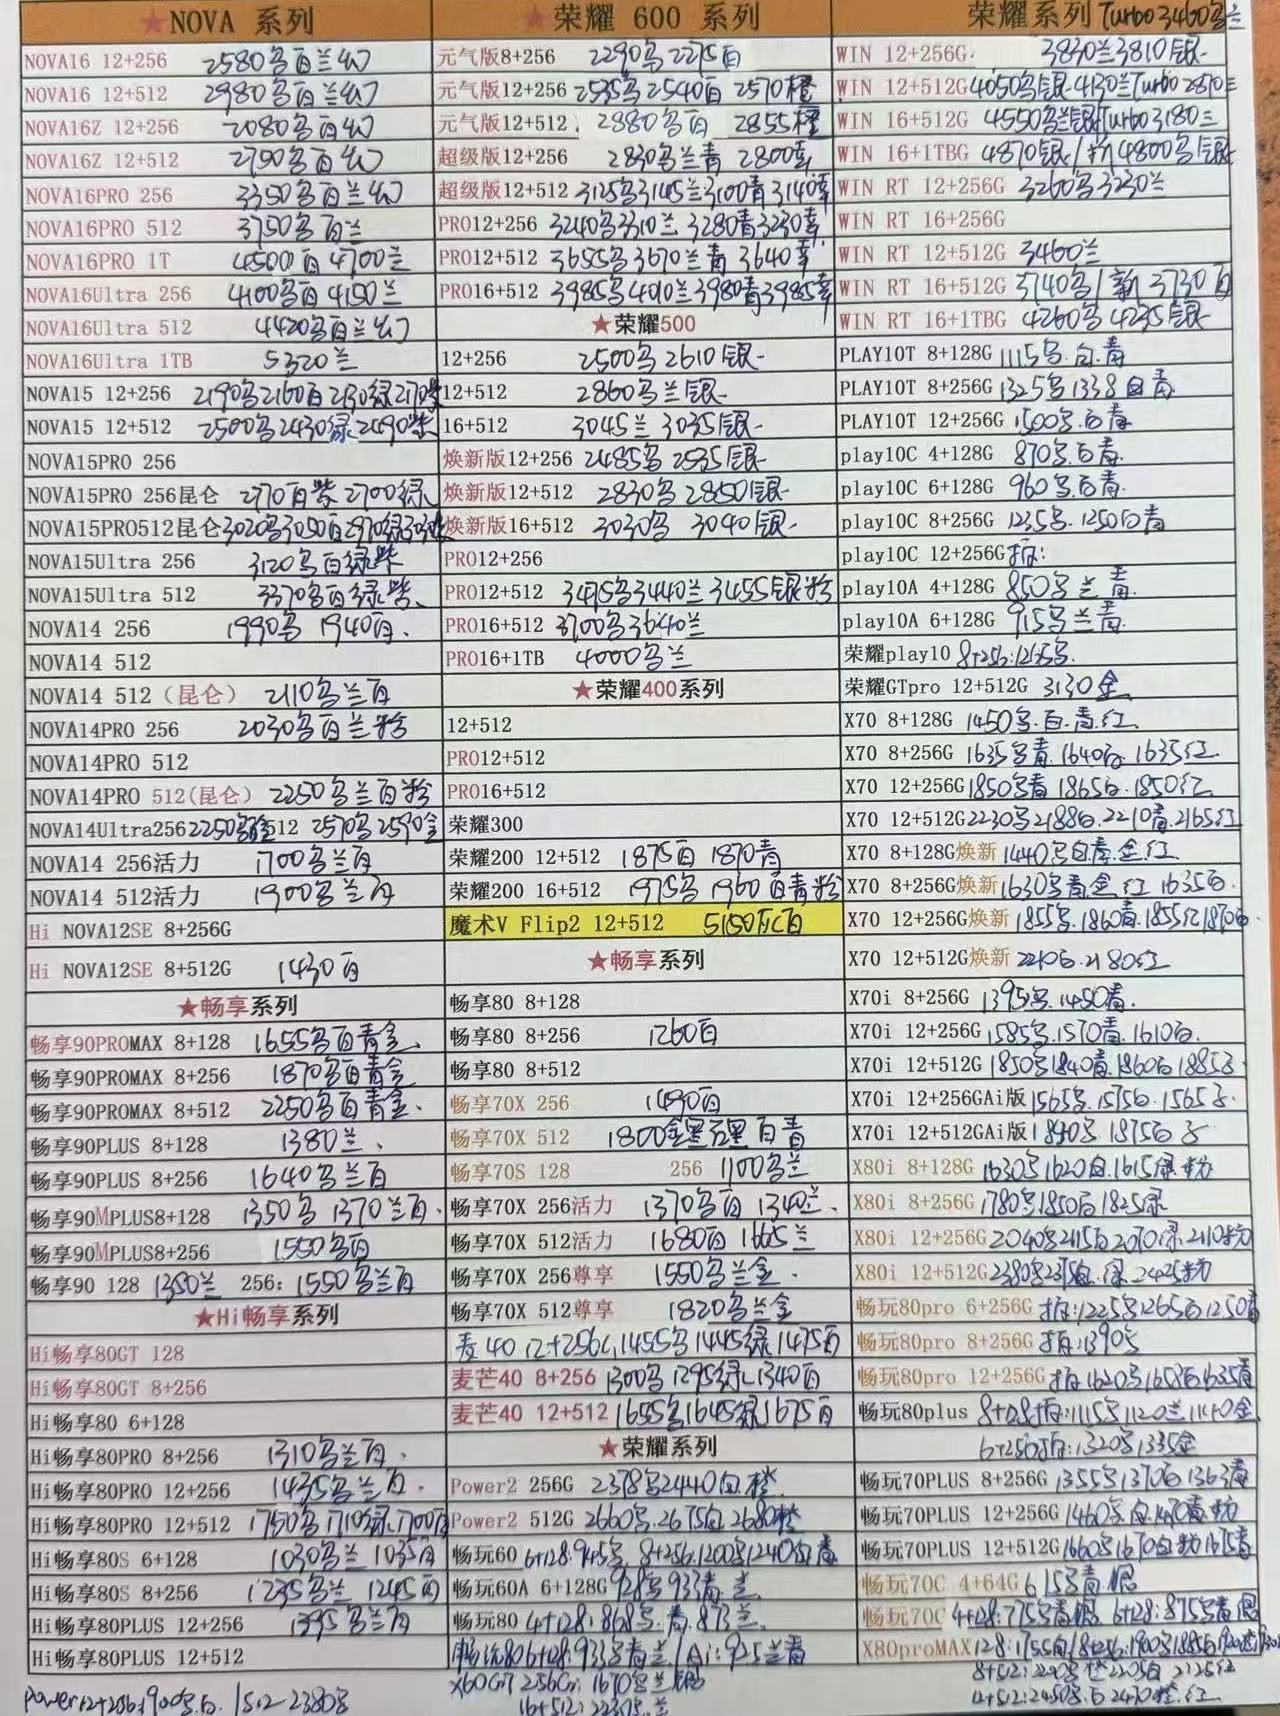 ★NOVA 系列
NOVA16 12+256 2580名百兰幻
NOVA16 12+512 2980名百兰幻
NOVA16Z 12+256 2080名百幻
NOVA16Z 12+512 2750名百幻
NOVA16PRO 256 3350名百兰幻
NOVA16PRO 512 3750名百兰
NOVA16PRO 1T 4500百 4700兰
NOVA16Ultra 256 4100名百 4150兰
NOVA16Ultra 512 4420名百兰幻
NOVA16Ultra 1TB 5320兰
NOVA15 12+256 2190名2160百
NOVA15 12+512 2500名2430绿2490紫
NOVA15PRO 256
NOVA15PRO 256昆仑 2770百紫 2700绿
NOVA15PRO512昆仑3020名3050百2970绿
NOVA15Ultra 256 3120名百绿紫
NOVA15Ultra 512 3370名百绿紫
NOVA14 256 1990名 1940百
NOVA14 512
NOVA14 512（昆仑） 2110名兰百
NOVA14PRO 256 2030名百兰粉
NOVA14PRO 512
NOVA14PRO 512(昆仑) 2250名兰百粉
NOVA14Ultra256 2250名金512 2570名2590金
NOVA14 256活力 1700名兰百
NOVA14 512活力 1900名兰百
Hi NOVA12SE 8+256G
Hi NOVA12SE 8+512G 1430百
★畅享系列
畅享90PROMAX 8+128 1655名百青金
畅享90PROMAX 8+256 1870名百青金
畅享90PROMAX 8+512 2250名百青金
畅享90PLUS 8+128 1380兰
畅享90PLUS 8+256 1640名兰百
畅享90MPLUS8+128 1350名 1370兰百
畅享90MPLUS8+256 1550名百
畅享90 128 1350兰 256: 1550名兰百
★Hi畅享系列
Hi畅享80GT 128
Hi畅享80GT 8+256
Hi畅享80 6+128
Hi畅享80PRO 8+256 1310名兰百
Hi畅享80PRO 12+256 1435名兰百
Hi畅享80PRO 12+512 1750名1710绿1700百
Hi畅享80S 6+128 1030名兰 1035百
Hi畅享80S 8+256 1235名兰 1245百
Hi畅享80PLUS 12+256 1395名兰百
Hi畅享80PLUS 12+512
★荣耀 600 系列
元气版8+256 2290名2275百
元气版12+256 2535名2540百 2570橙
元气版12+512 2880名百 2855橙
超级版12+256 2830名兰青 2800幸
超级版12+512 3125名3145兰3100青3140幸
PRO12+256 3240名3310兰 3280青3230幸
PRO12+512 3655名3670兰青 3640幸
PRO16+512 3985名4010兰3980青3985幸
★荣耀500
12+256 2500名2610银
12+512 2860名兰银
16+512 3045兰 3035银
焕新版12+256 2485名 2535银
焕新版12+512 2830名 2850银
焕新版16+512 3030名 3040银
PRO12+256
PRO12+512 3475名3440兰3455银粉
PRO16+512 3700名3640兰
PRO16+1TB 4000名兰
★荣耀400系列
12+512
PRO12+512
PRO16+512
荣耀300
荣耀200 12+512 1875百 1870青
荣耀200 16+512 1975名 1960百青粉
魔术V Flip2 12+512 5150灰百
★畅享系列
畅享80 8+128
畅享80 8+256 1260百
畅享80 8+512
畅享70X 256 1490百
畅享70X 512 1800金黑百青
畅享70S 128 256 1100名兰
畅享70X 256活力 1370名百 1340兰
畅享70X 512活力 1680百 1665兰
畅享70X 256尊享 1550名兰金
畅享70X 512尊享 1820名兰金
麦40 12+256G 1455名1445绿1475百
麦芒40 8+256 1300名1295绿1340百
麦芒40 12+512 1655名1645绿1675百
★荣耀系列
Power2 256G 2378名2440白.橙
Power2 512G 2660名.2675白2680橙
畅玩60 6+128:945名 8+256:1200名1240白青
畅玩60A 6+128G 928名933青兰
畅玩80 4+128:868名.青.873兰
畅玩80 6+128:933名青兰/Ai:925兰青
荣耀系列 Turbo3460名兰
WIN 12+256G 3830兰3810银
WIN 12+512G 4050名银 4130兰Turbo 2870
WIN 16+512G 4550名兰银Turbo3180
WIN 16+1TBG 4870银/新4800名银
WIN RT 12+256G 3260名3230兰
WIN RT 16+256G
WIN RT 12+512G 3460兰
WIN RT 16+512G 3740名/新 3730百
WIN RT 16+1TBG 4260名 4235银
PLAY10T 8+128G 1115名.白.青
PLAY10T 8+256G 1325名1338白青
PLAY10T 12+256G 1500名.白青
play10C 4+128G 870名.白青
play10C 6+128G 960名.白青
play10C 8+256G 1235名.1250白青
play10C 12+256G
play10A 4+128G 850名兰青
play10A 6+128G 915名兰青
荣耀play10 8+256:1265名
荣耀GTpro 12+512G 3130金
X70 8+128G 1450名.白.青.红
X70 8+256G 1635名青.1640白.1635红
X70 12+256G 1850名青 1865白.1850红
X70 12+512G 2230名2188白.2210青.2165红
X70 8+128G焕新 1440名白.青.金.红
X70 8+256G焕新 1630名青.金.红 1635白
X70 12+256G焕新 1855名.1860青.1855红1870白
X70 12+512G焕新 2210白.2180红
X70i 8+256G 1395名.1450青
X70i 12+256G 1585名.1570青.1610白
X70i 12+512G 1850名1840青.1860白1885
X70i 12+256GAi版 1565名.1575白.1565
X70i 12+512GAi版 1890名 1875白
X80i 8+128G 1630名1620白.1615绿粉
X80i 8+256G 1780名1850白1825绿
X80i 12+256G 2040名2115白2070绿.2110粉
X80i 12+512G 2380名2375白.绿.2425粉
畅玩80pro 6+256G 1225名1265白1250青
畅玩80pro 8+256G 1390名
畅玩80pro 12+256G 1620名1658白1635青
畅玩80plus 8+128 1115名1120兰1140金
6+256 1320名1335金
畅玩70PLUS 8+256G 1355名1370白1363青
畅玩70PLUS 12+256G 1460名.白.1470青.粉
畅玩70PLUS 12+512G 1660名1670白粉1675青
畅玩70C 4+64G 615名青.银
畅玩70C 4+128:775名青银 6+128:875名青银
X80proMAX 128:1755白/8+256:1900名1885白
8+512:2200名 橙2205白 2125红
12+512:2450名.白2430橙.红
X60GT 256G: 1670名兰银
16+512: 2230名.兰
Power12+256:1900名.白. /512 2380名